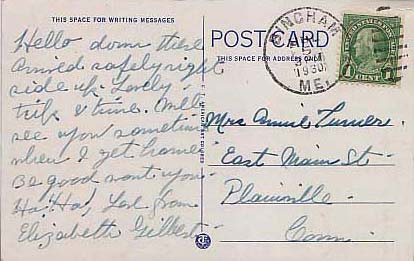 THIS SPACE FOR WRITING MESSAGES
Hello down there
Arrived safely right
side up. Lovely
trip & time. Will
see you sometime
when I get home
Be good wont you
Ha! Ha! Love from
Elizabeth Gilbert
POST CARD
THIS SPACE FOR ADDRESS ONLY
BINGHAM
1930
ME.
1 CENT 1
Mrs Turner
East Main St
Plainville
Conn